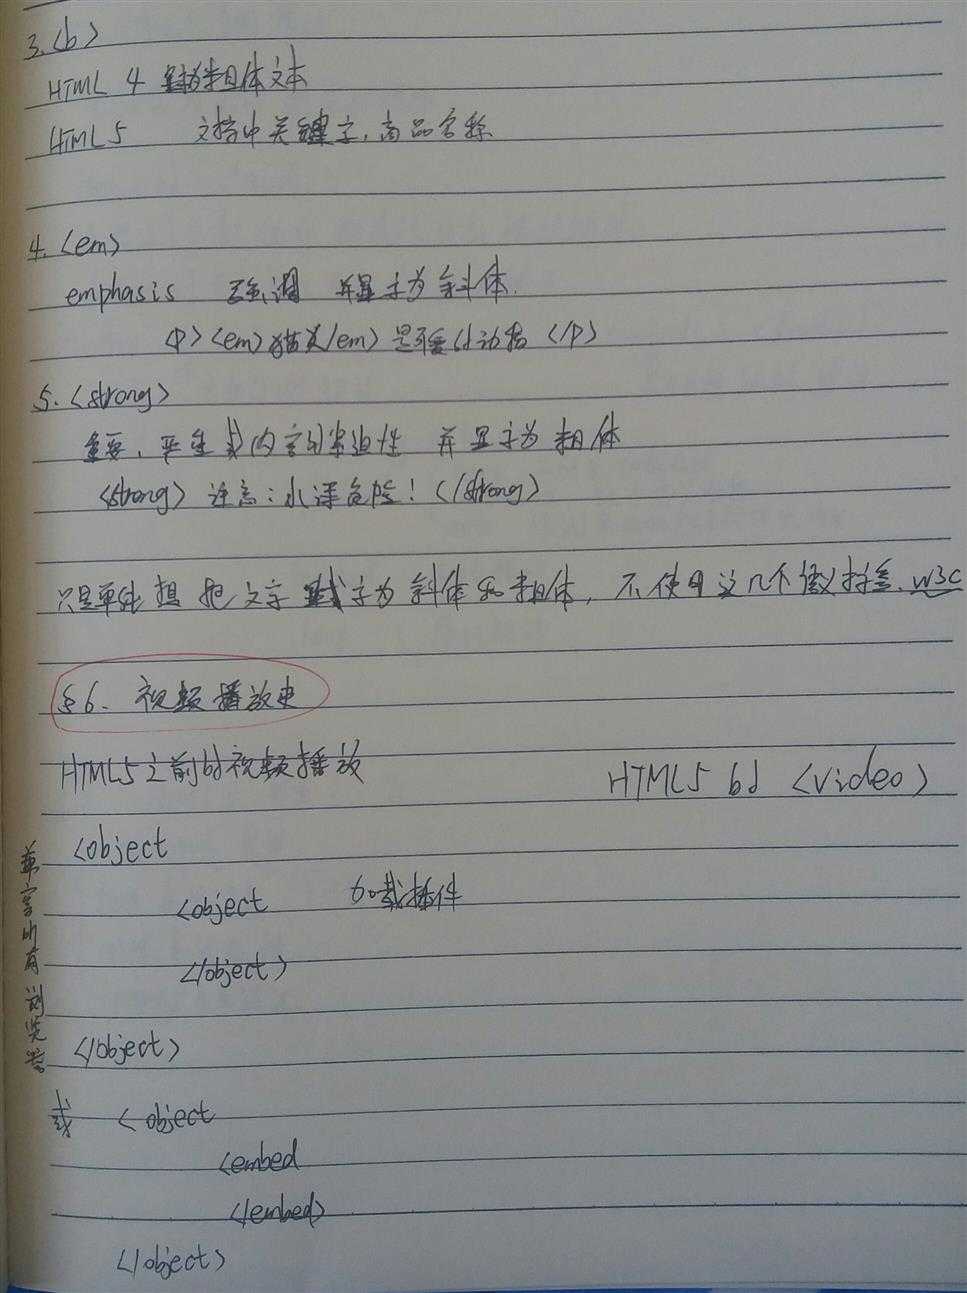 3. <b>
HTML 4 粗体文本
HTML5 文档中关键字，商品名称
4. <em>
emphasis 强调 并显示为斜体.
<p><em>猫</em>是可爱的动物</p>
5. <strong>
重要、严重或内容的紧迫性 并显示为粗体
<strong>注意：水深危险！</strong>
只是单纯想把文字显示为斜体和粗体，不使用这几个标签. W3C
§6. 视频播放史
HTML5之前的视频播放 HTML5的<video>
<object
<object 加载插件
</object>
</object>
兼容所有浏览器
或 <object
<embed
</embed>
</object>